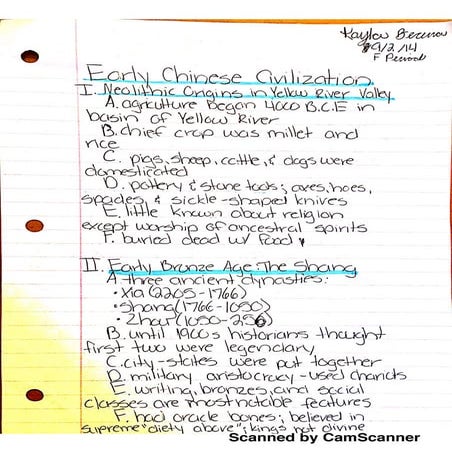 9/2/14
F Period
Early Chinese Civilization
I. Neolithic Origins in Yellow River Valley
A. agriculture began 4000 B.C.E in
basin of Yellow River
B. chief crop was millet and
rice
C. pigs, sheep, cattle, & dogs were
domesticated
D. pottery & stone tools; axes, hoes,
spades, & sickle-shaped knives
E. little known about religion
except worship of ancestral spirits
F. buried dead w/ food
II. Early Bronze Age: The Shang
A. three ancient dynasties:
• Xia (2205-1766)
• Shang (1766-1050)
• Zhou (1050-256)
B. until 1900s historians thought
first two were legendary
C. city-states were put together
D. military aristocracy - used chariots
E. writing, bronzes, and social
classes are most notable features
F. had oracle bones; believed in
supreme "diety above"; kings not divine
Scanned by CamScanner